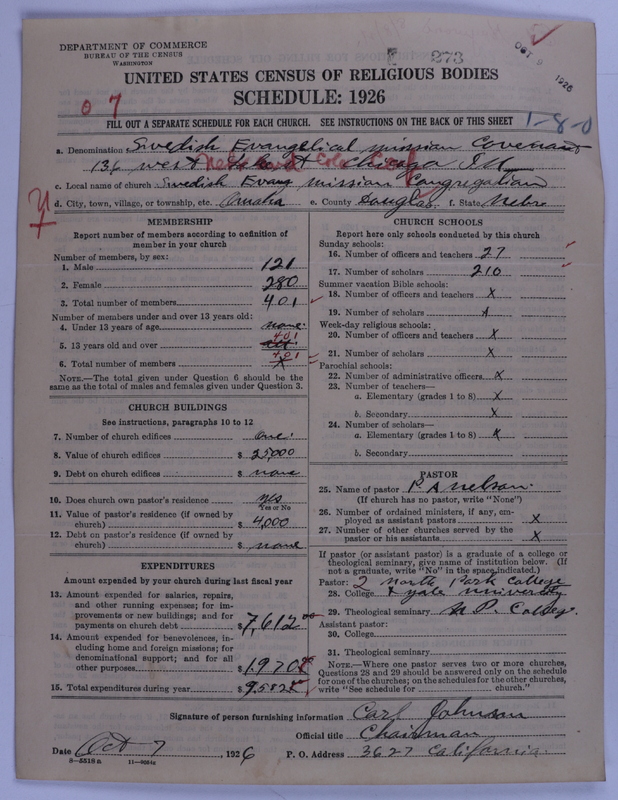 DEPARTMENT OF COMMERCE
BUREAU OF THE CENSUS
WASHINGTON
273
OCT 9 1926
UNITED STATES CENSUS OF RELIGIOUS BODIES
SCHEDULE: 1926
07
FILL OUT A SEPARATE SCHEDULE FOR EACH CHURCH. SEE INSTRUCTIONS ON THE BACK OF THIS SHEET
1-8-0
a. Denomination Swedish Evangelical mission Covenant
136 west Chicago Ill
c. Local name of church Swedish Evang mission Congregation
d. City, town, village, or township, etc. Omaha e. County Douglas f. State Nebr
MEMBERSHIP
Report number of members according to definition of member in your church
Number of members, by sex:
1. Male 121
2. Female 280
3. Total number of members 401
Number of members under and over 13 years old:
4. Under 13 years of age none
5. 13 years old and over 401
6. Total number of members 401 X
NOTE.—The total given under Question 6 should be the same as the total of males and females given under Question 3.
CHURCH BUILDINGS
See instructions, paragraphs 10 to 12
7. Number of church edifices one
8. Value of church edifices $ 25,000
9. Debt on church edifices $ none
10. Does church own pastor's residence yes
Yes or No
11. Value of pastor's residence (if owned by church) $ 4,000
12. Debt on pastor's residence (if owned by church) $ none
EXPENDITURES
Amount expended by your church during last fiscal year
13. Amount expended for salaries, repairs, and other running expenses; for improvements or new buildings; and for payments on church debt $ 7,612 00
14. Amount expended for benevolences, including home and foreign missions; for denominational support; and for all other purposes $ 1970
15. Total expenditures during year $ 9,582
CHURCH SCHOOLS
Report here only schools conducted by this church
Sunday schools:
16. Number of officers and teachers 27
17. Number of scholars 210
Summer vacation Bible schools:
18. Number of officers and teachers X
19. Number of scholars X
Week-day religious schools:
20. Number of officers and teachers X
21. Number of scholars X
Parochial schools:
22. Number of administrative officers X
23. Number of teachers—
a. Elementary (grades 1 to 8) X
b. Secondary X
24. Number of scholars—
a. Elementary (grades 1 to 8) X
b. Secondary
PASTOR
25. Name of pastor P. A Nelson
(If church has no pastor, write "None")
26. Number of ordained ministers, if any, employed as assistant pastors X
27. Number of other churches served by the pastor or his assistants X
If pastor (or assistant pastor) is a graduate of a college or theological seminary, give name of institution below. (If not a graduate, write "No" in the space indicated.)
Pastor: 2 North Park College
28. College & yale university
29. Theological seminary N P. College.
Assistant pastor:
30. College
31. Theological seminary
NOTE.—Where one pastor serves two or more churches, Questions 28 and 29 should be answered only on the schedule for one of the churches; on the schedules for the other churches, write "See schedule for church."
Signature of person furnishing information Carl Johnson
Official title Chairman
Date Oct 7, 1926 P. O. Address 3627 California
8-5518 a